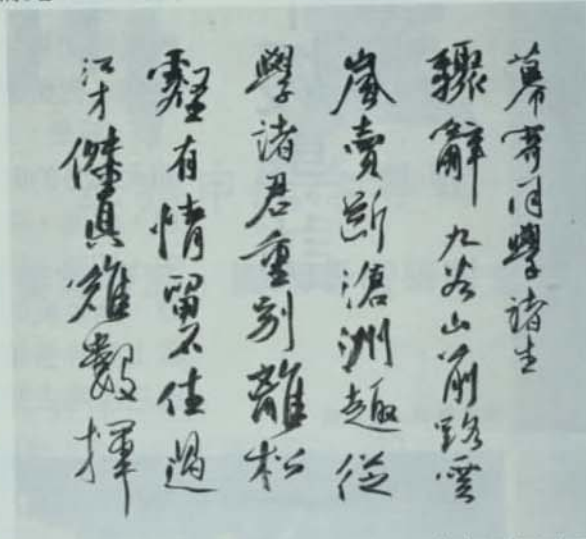 幕寄同學諸生
驟辭九谷山前路雲
嵐賣斷滄洲趣從
學諸君重別離松
壑有情留不住過
江才傑真難數揮